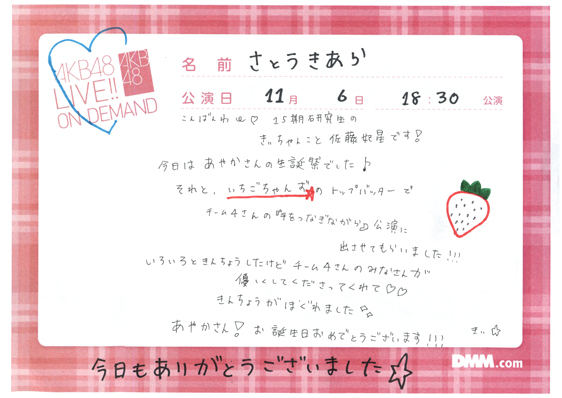 AKB48
LIVE!!
ON DEMAND
AKB
48
名 前 さとうきあら
公演日 11月 6日 18:30 公演
こんばんわ♡ 15期研究生の
きぃちゃんこと 佐藤妃星です!
今日は あやかさんの生誕祭でした♪
それと、いちごちゃんずのトップバッターで
チーム4さんの 公演に
出させてもらいました!!!
いろいろときんちょうしたけど チーム4さんのみなさんが
優しくしてくださってくれて♡♡
きんちょうがほぐれました☆☆
あやかさん! お誕生日おめでとうございます!!! きぃ☆
今日もありがとうございました☆
DMM.com